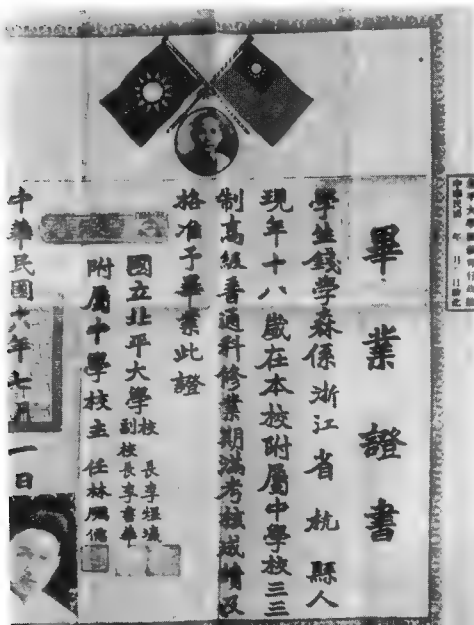 畢業證書
學生錢學森係浙江省杭縣人
現年十八歲在本校附屬中學校三三
制高級普通科修業期滿考核成績及
格准予畢業此證
國立北平大學校長李煜瀛
副校長李書華
附屬中學校主任林礪儒
中華民國十八年七月一日